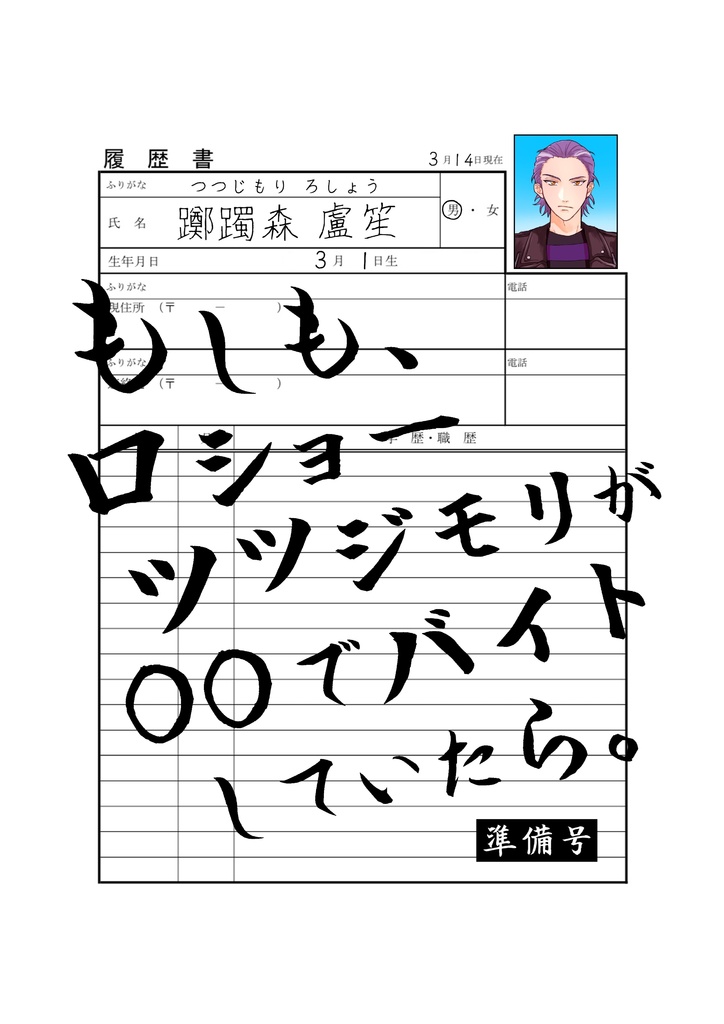 履歴書 3月14日現在
ふりがな つつじもり ろしょう
氏名 躑躅森 盧笙 男・女
生年月日 3月 1日生
ふりがな 電話
現住所 (〒 － )
もしも、
ふりがな 電話
(〒 － )
学歴・職歴
ロショー
ツツジモリが
〇〇でバイト
していたら。
準備号